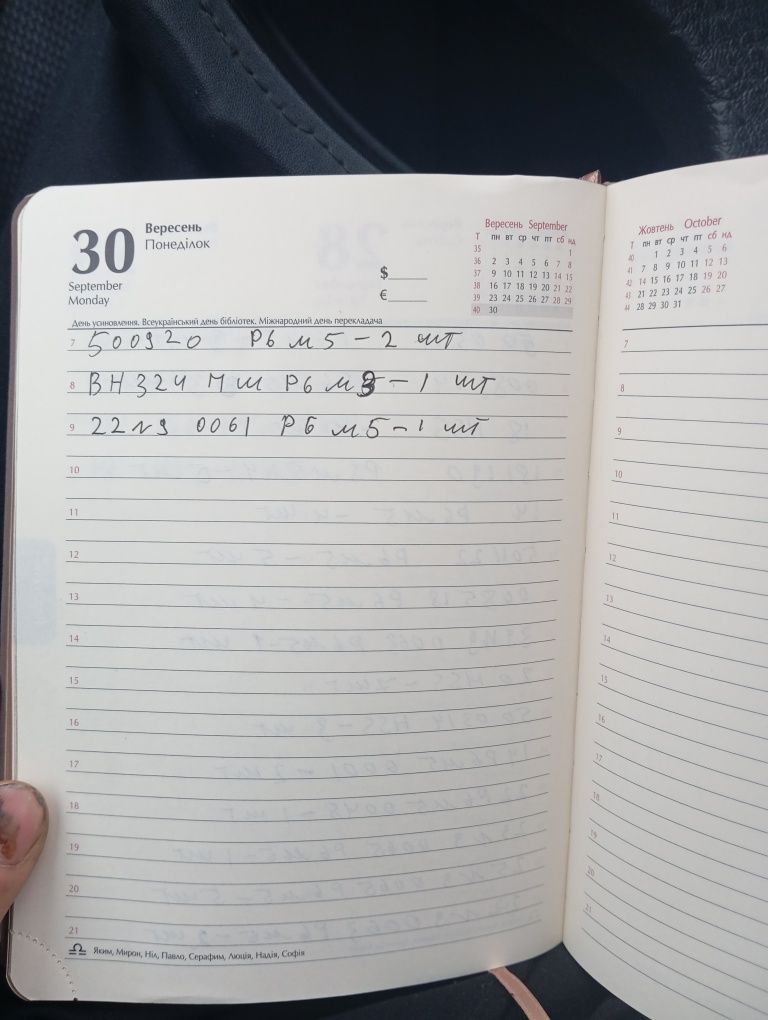 30
Вересень
Понеділок
September
Monday
$
€
Вересень September
Т пн вт ср чт пт сб нд
35 1
36 2 3 4 5 6 7 8
37 9 10 11 12 13 14 15
38 16 17 18 19 20 21 22
39 23 24 25 26 27 28 29
40 30
День усиновлення. Всеукраїнський день бібліотек. Міжнародний день перекладача
7 500920 Р6 м5 - 2 шт
8 ВН324 Мш Р6 м - 1 шт
9 22 0061 Р6 м5 - 1 шт
10
11
12
13
14
15
16
17
18
19
20
21
Яким, Мирон, Ніл, Павло, Серафим, Люція, Надія, Софія
Жовтень October
Т пн вт ср чт пт сб нд
40 1 2 3 4 5 6
41 7 8 9 10 11 12 13
42 14 15 16 17 18 19 20
43 21 22 23 24 25 26 27
44 28 29 30 31
7
8
9
10
11
12
13
14
15
16
17
18
19
20
21